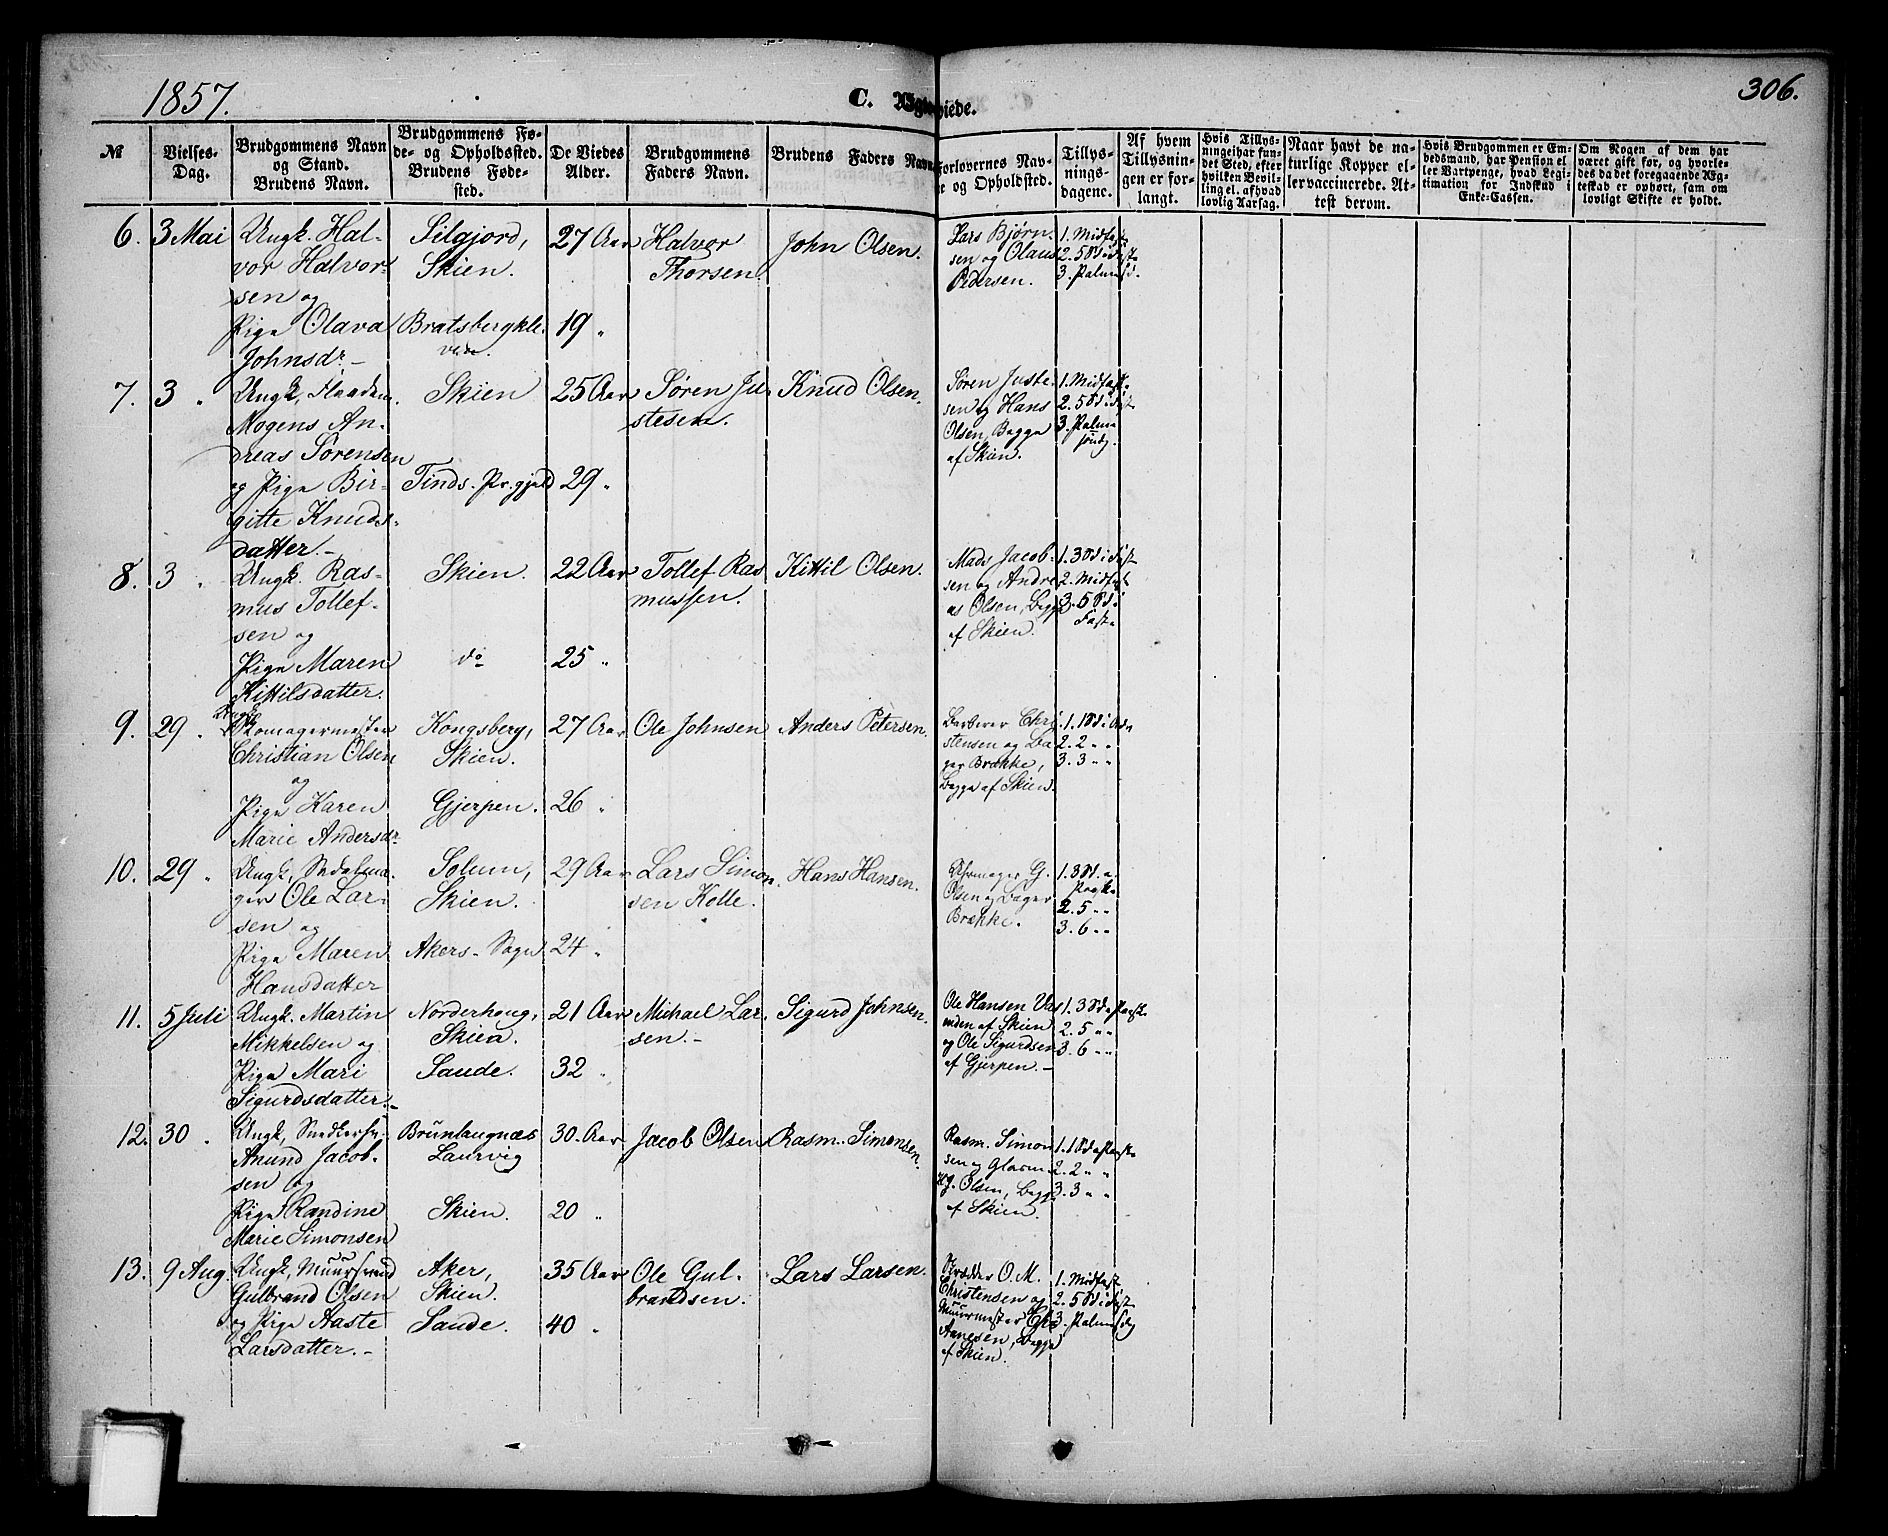 1857.
C. Ægteviede.
306.
№
Vielses-
Dag.
Brudgommens Navn
og Stand.
Brudens Navn.
Brudgommens Fø-
de- og Opholdssted.
BrudensFøde-
sted.
De Viedes
Alder.
Brudgommens
Faders Navn.
Brudens Faders Navn
Forlovernes Nav-
ne og Opholdsted.
Tillys-
nings-
dagene.
Af hvem
Tillysnin-
gen er for-
langt.
Hvis Tillys-
ningeihar fun-
det Sted, efter
hvilken Bevil-
ling el. afhvad
lovlig Aarsag.
Naar havt de na-
turlige Kopper el-
lervaccinerede. At-
test derom.
Hvis Brudgommen er Em-
bedsmand, har Pension el
ler Vartpenge, hvad Legi-
timation for Indskud i
Enke-Cassen.
Om Nogen af dem har
været gift før, og hvorle-
des da det foregaaende Æg-
teskab er ophørt, sam om
lovligt Skifte er holdt.
6. 3 Mai
Ungk. Hal-
vor Halvor-
sen og
Pige Olava
Johnsdr.-
Silgjord,
Skien.
Bratsbergkle-
ven.
27 Aar
19 "
Halvor
Thorsen.
John Olsen.
Lars Bjørn-
sen og Olaus
Pedersen.
1. Midfast
2. 5 Sd i Fast
3. Palmesd.
7. 3 "
Ungk,
Mogens An-
dreas Sørensen
og Pige Bir-
gitte Knuds-
datter.-
Skien
Tinds. Pr.gjeld
25 Aar
29 "
Søren Ju-
stesen.
Knud Olsen.
Søren Juste-
sen og Hans
Olsen, Begge
af Skien.
1. Midfast.
2. 5 Sd i Fast
3. Palme
søndg.
8. 3 "
Ungk. Ras-
mus Tollef-
sen og
Pige Maren
Kittilsdatter.
Skien.
do
22 Aar
25 "
Tollef Ras
mussen.
Kittil Olsen.
Mads Jacob-
sen og Andre
as Olsen, Begge
af Skien.
1. 3 Sd i Fast
2. Midfast
3. 5 Sd i
Faste
9. 29 "
Ungk.
Skomagermester
Christian Olsen
og
Pige Karen
Marie Andersdr.
Kongsberg,
Skien.
Gjerpen.
27 Aar
26 "
Ole Johnsen
Anders Petersen.
Barberer Chri-
stensen og Ba
ger Brække,
Begge af Skien.
1. 1 Sd i Adv
2. 2 " "
3. 3 " "
10. 29 "
Ungk, Sadelma-
ger Ole Lar-
sen og
Pige Maren
Hansdatter
Solum,
Skien.
Akers- Sogn
29 Aar
24 "
Lars Simon-
sen Kolle.
Hans Hansen.
Uhrmager G.
Olsen og Bager
Brække.
1. 3 Sd. e
Paaske
2. 5 " "
3. 6 " "
11. 5 Juli
Ungk. Martin
Mikkelsen og
Pige Mari
Sigurdsdatter.-
Norderhoug,
Skien.
Saude.
21 Aar
32 "
Michael Lar-
sen.-
Sigurd Johnsen.
Ole Hansen Vas
enden af Skien
og Ole Sigurdsen
af Gjerpen.-
1. 3 Sd e Paask
2. 5 " "
3. 6 " "
12. 30 "
Ungk, Snedkersv.
Anund Jacob-
sen og
Pige Randine
Marie Simonsen
Brunlaugnæs
Laurvig
Skien.
30. Aar
20 "
Jacob Olsen
Rasm. Simonsen.
Rasm. Simon
sen og Glasm.
H.J. Olsen, Begge
af Skien.
1. 1 Sd e Paaske
2. 2 " "
3. 3 " "
13. 9 Aug.
Ungk, Muursvend
Gulbrand Olsen
og Pige Aaste
Larsdatter.-
Aker,
Skien.
Saude.
35 Aar
40 "
Ole Gul-
brandsen.
Lars Larsen.
Skrædder O. M.
Christensen og
Muurmester Chr.
Annesen, Begge
af Skien.
1. Midfast
2. 5 Sd i Fast
3. Palmesdg